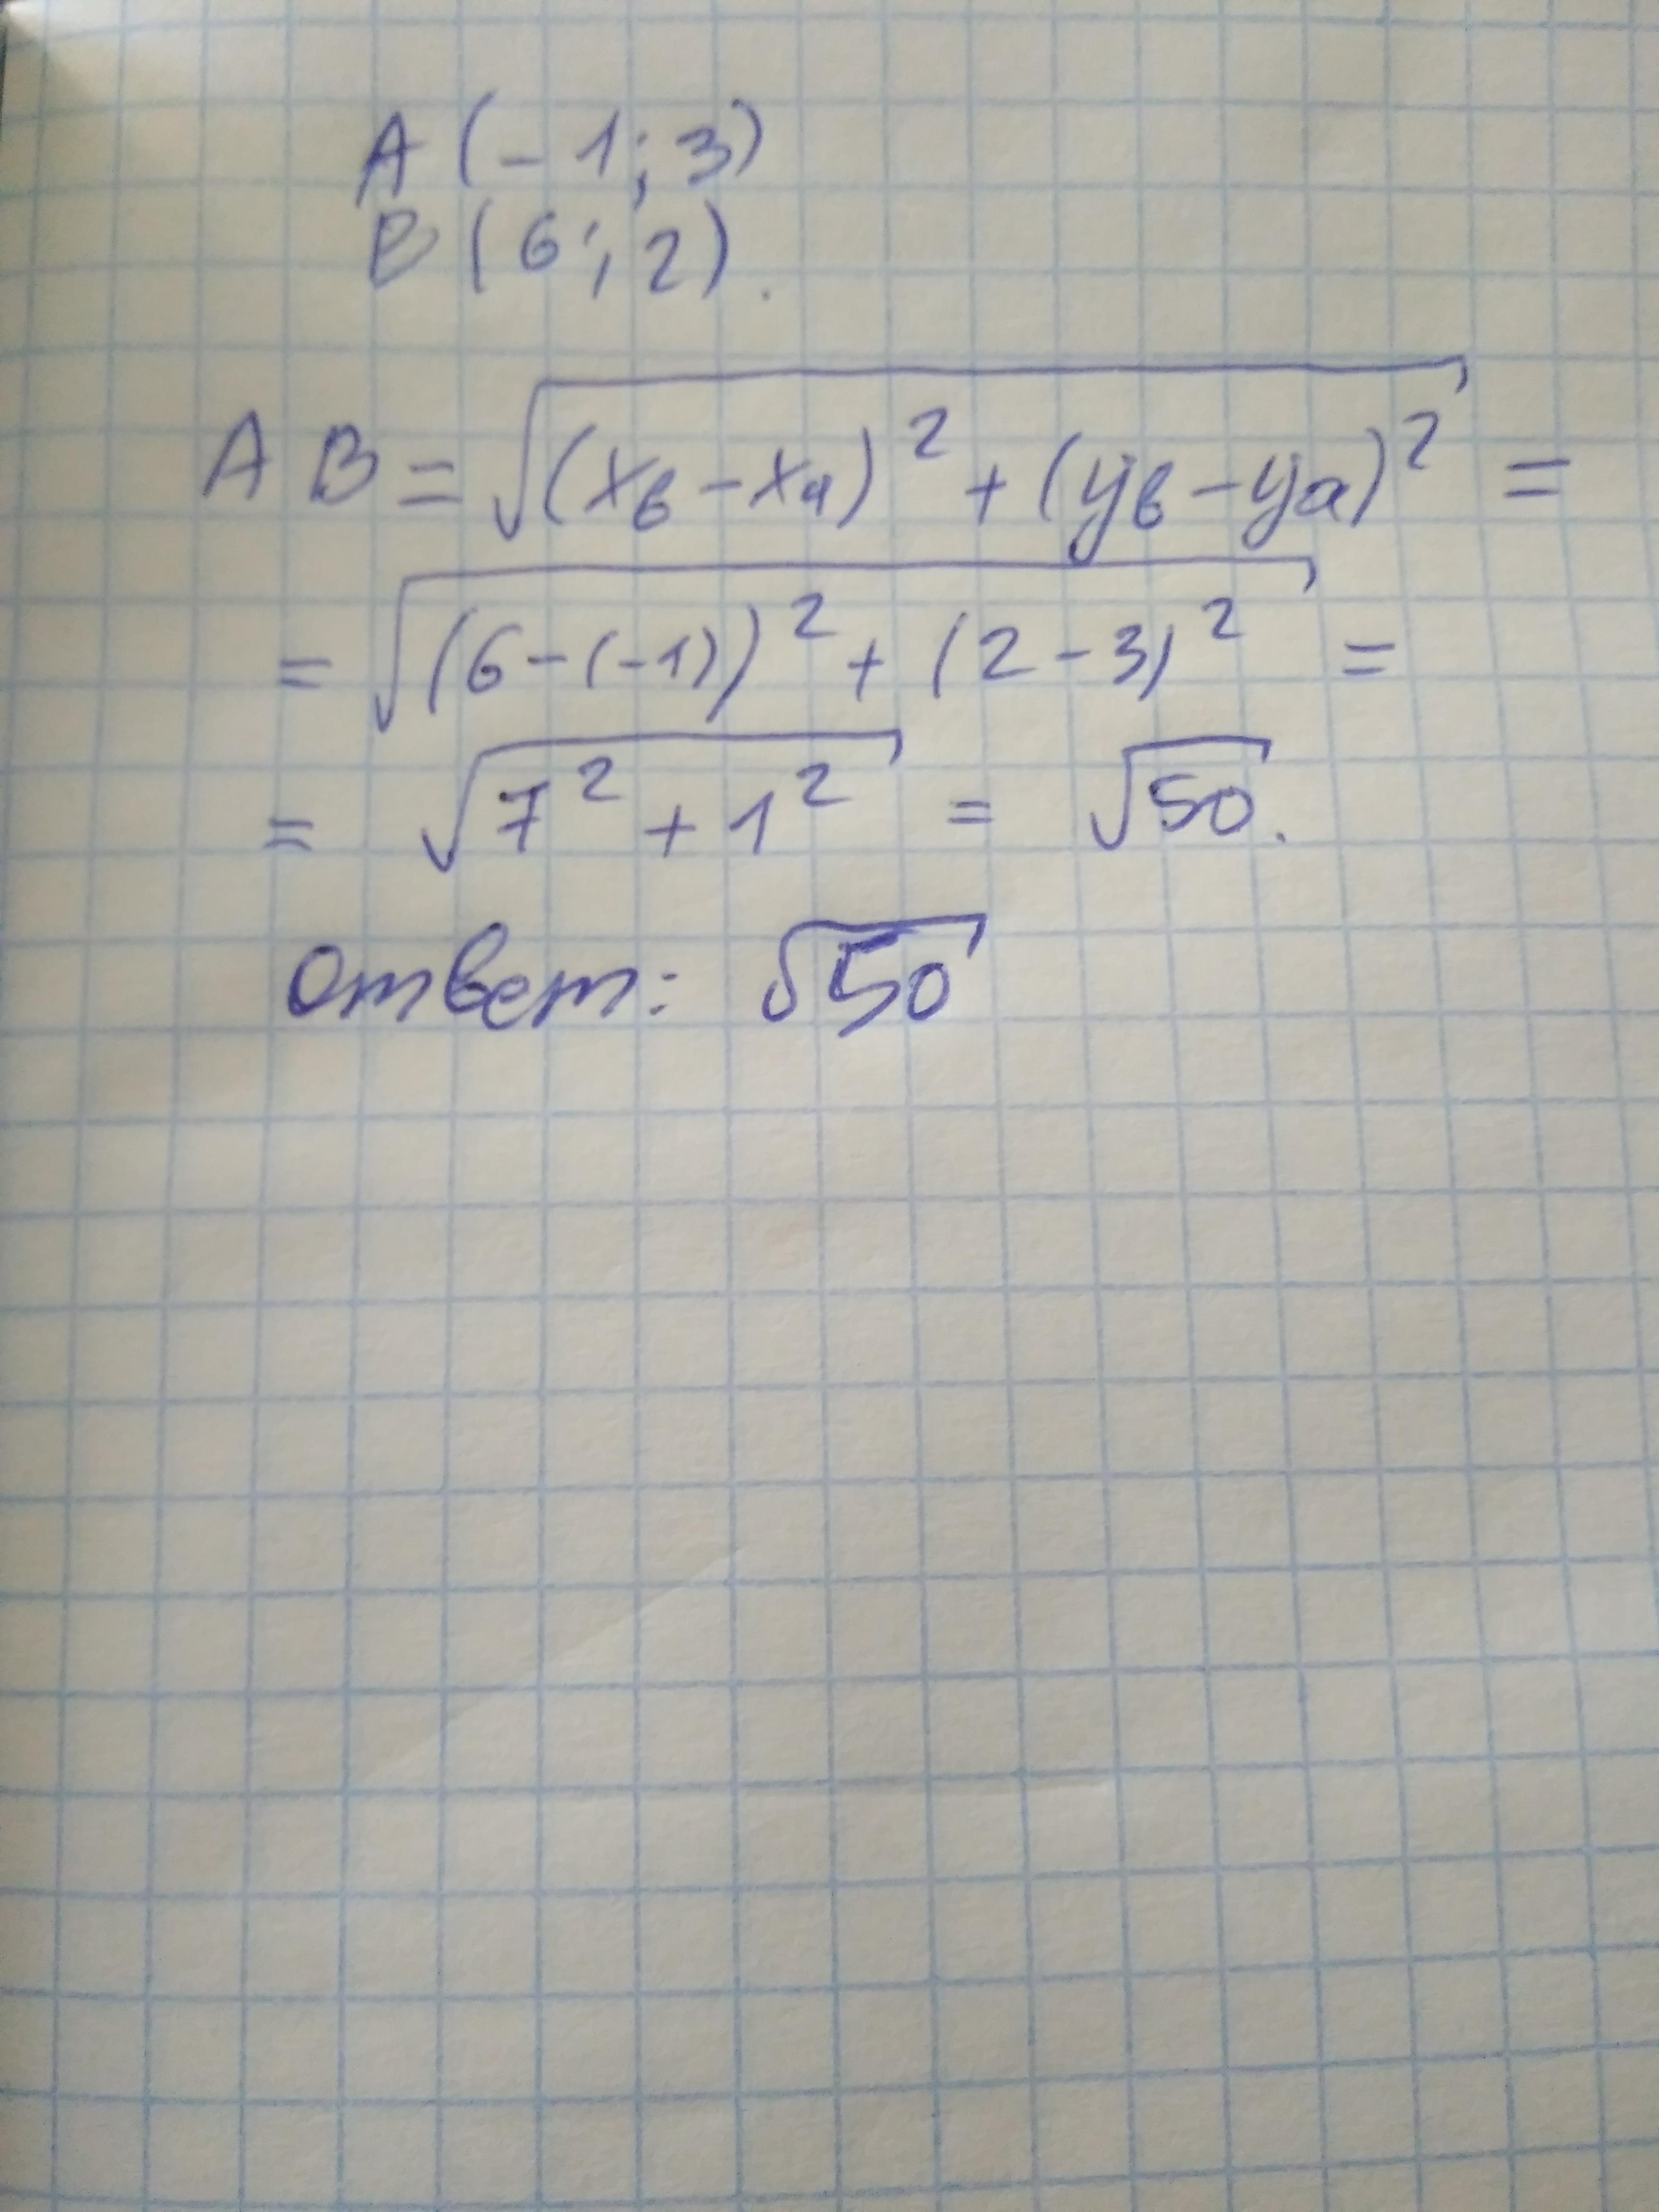 A (-1; 3)
B (6; 2).
AB = √((xв - xа)² + (yв - yа)²) =
= √((6 - (-1))² + (2 - 3)²) =
= √(7² + 1²) = √50.
Ответ: √50